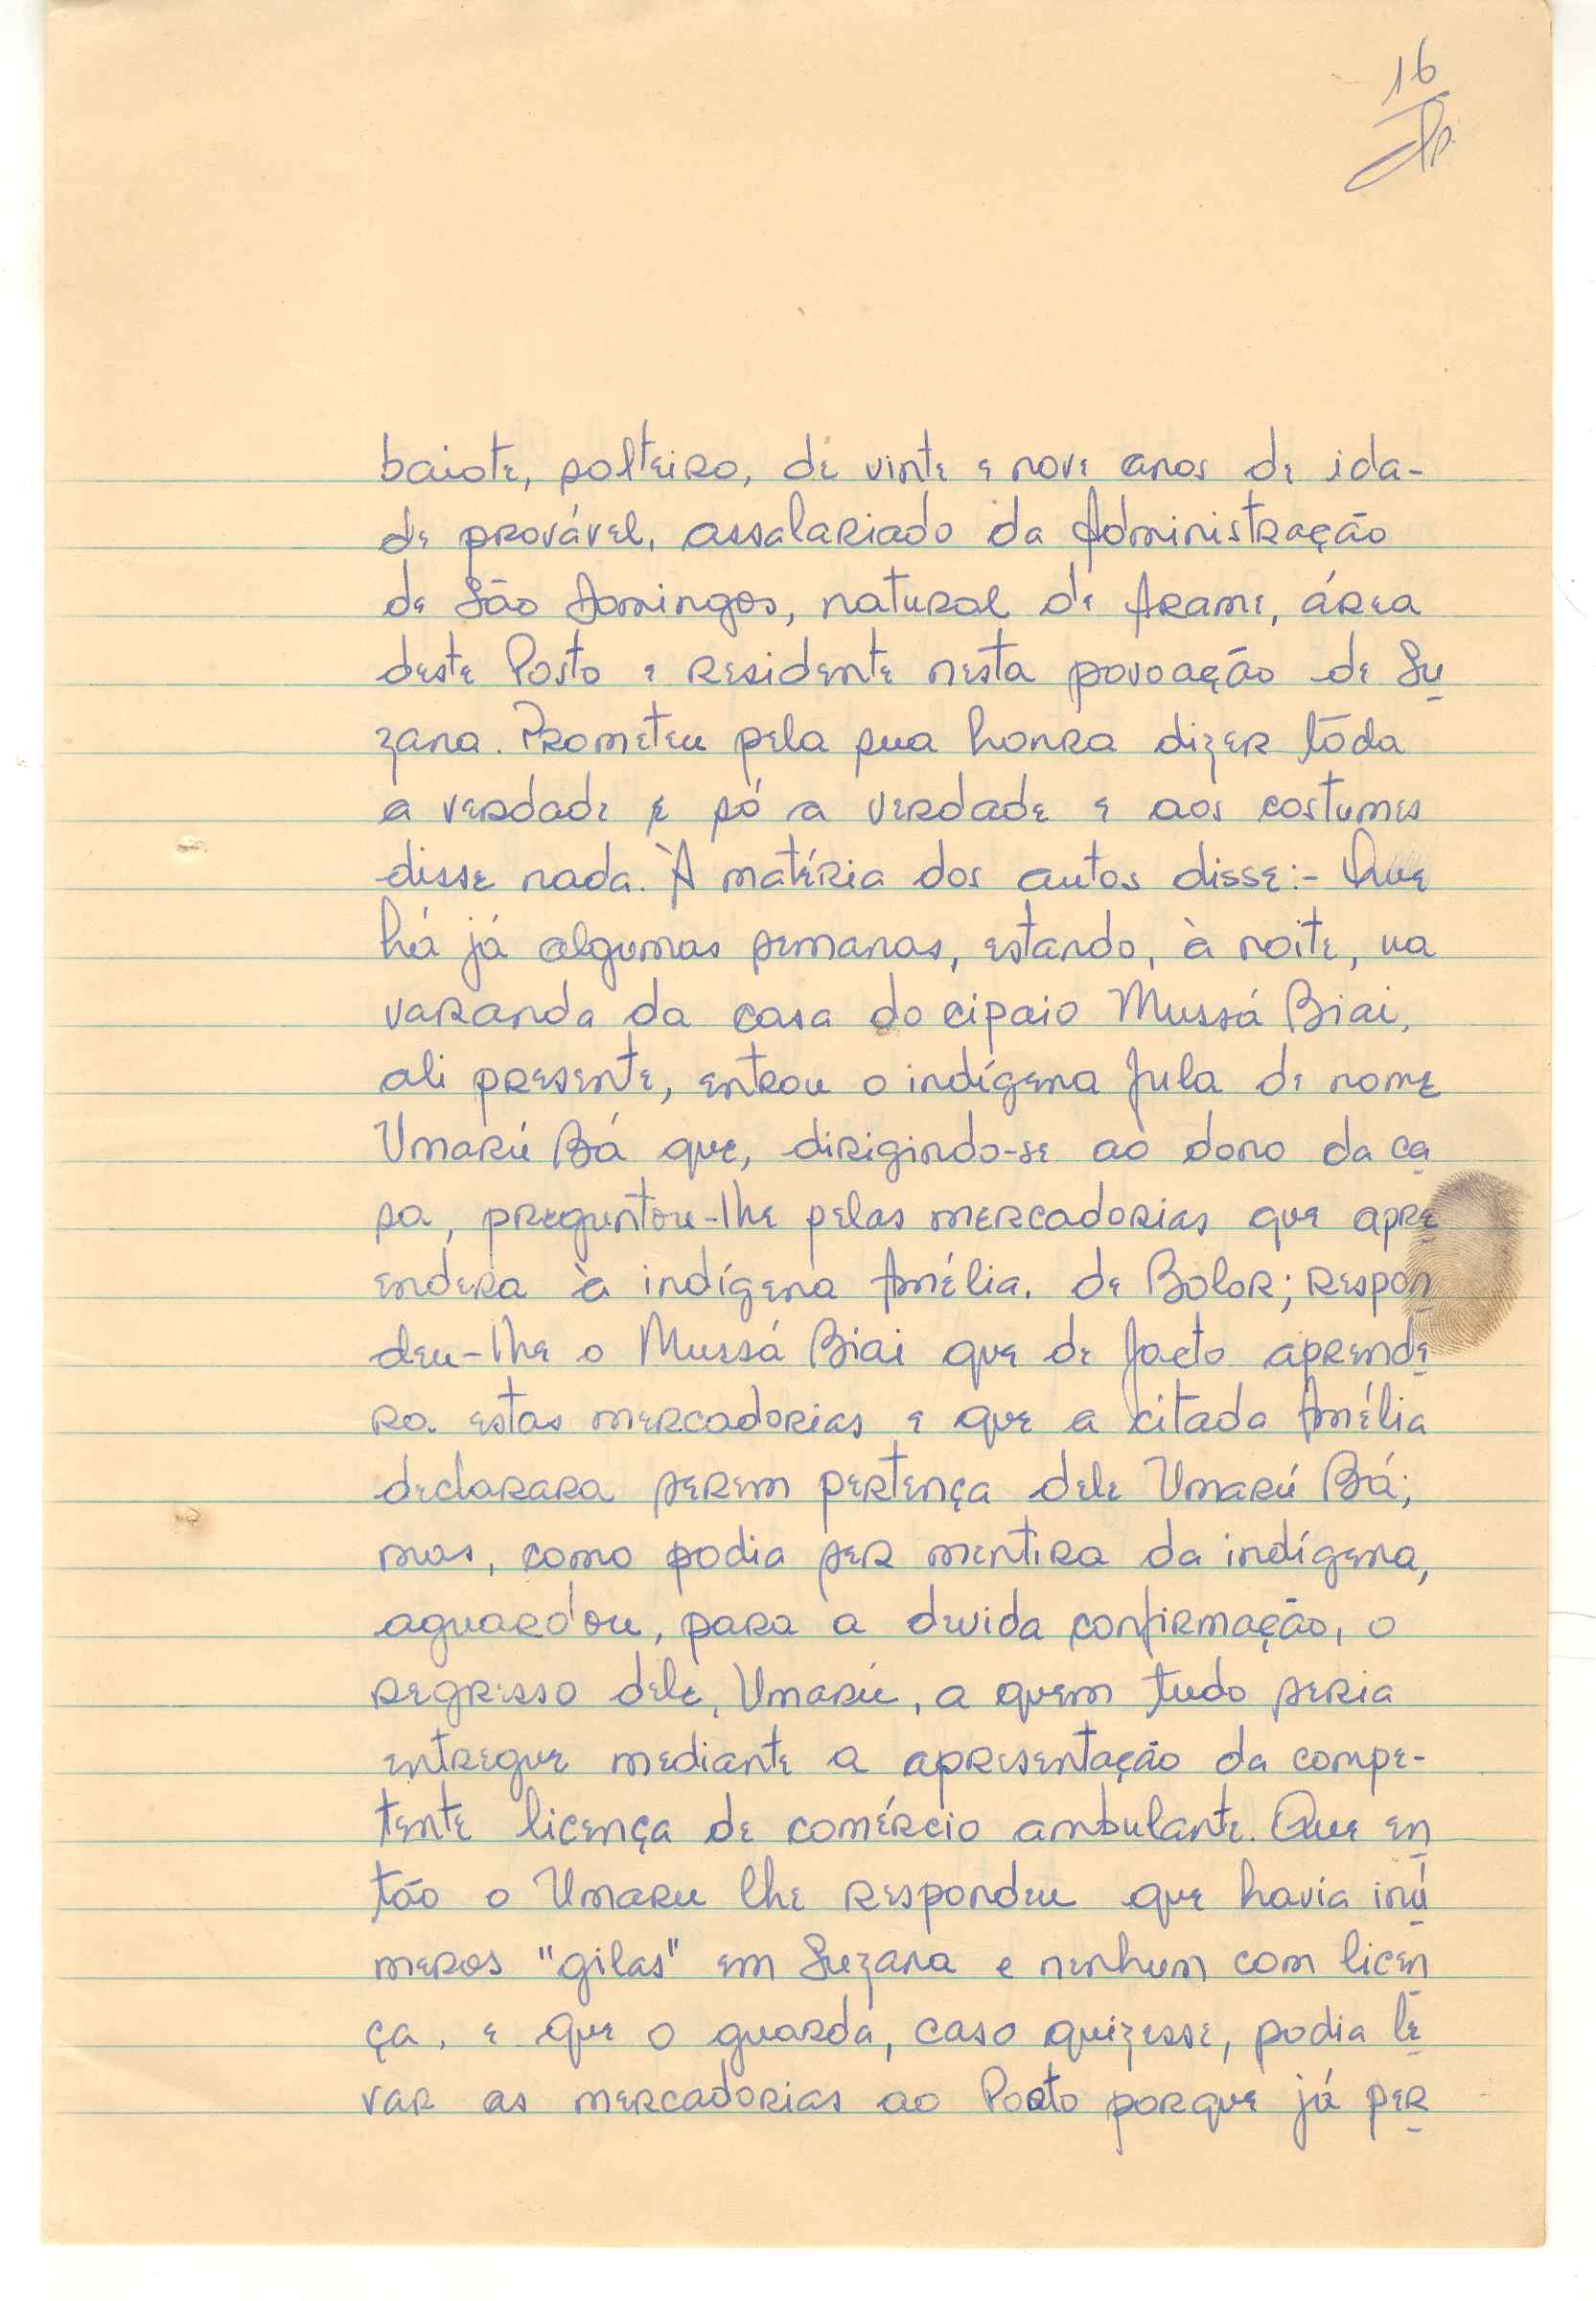 16
baiote, solteiro, de vinte e nove anos de ida-
de provável, assalariado da Administração
de São Domingos, natural de Arame, área
deste Posto e residente nesta povoação de Su
zana. Prometeu pela sua honra dizer tôda
a verdade e só a verdade e aos costumes
disse nada. À matéria dos autos disse:- Que
há já algumas semanas, estando, à noite, na
varanda da casa do cipaio Mussá Biai,
ali presente, entrou o indígena fula de nome
Umarú Bá que, dirigindo-se ao dono da ca
sa, preguntou-lhe pelas mercadorias que apre
endera à indígena Amélia, de Bolor; respon
deu-lhe o Mussá Biai que de facto aprende
ra estas mercadorias e que a citada Amélia
declarara serem pertença dele Umarú Bá;
mas, como podia ser mentira da indígena,
aguardou, para a devida confirmação, o
regresso dele, Umarú, a quem tudo seria
entregue mediante a apresentação da compe-
tente licença de comércio ambulante. Que en
tão o Umaru lhe respondeu que havia inú
meros "gilas" em Suzana e nenhum com licen
ça, e que o guarda, caso quizesse, podia le
var as mercadorias ao Posto porque já per